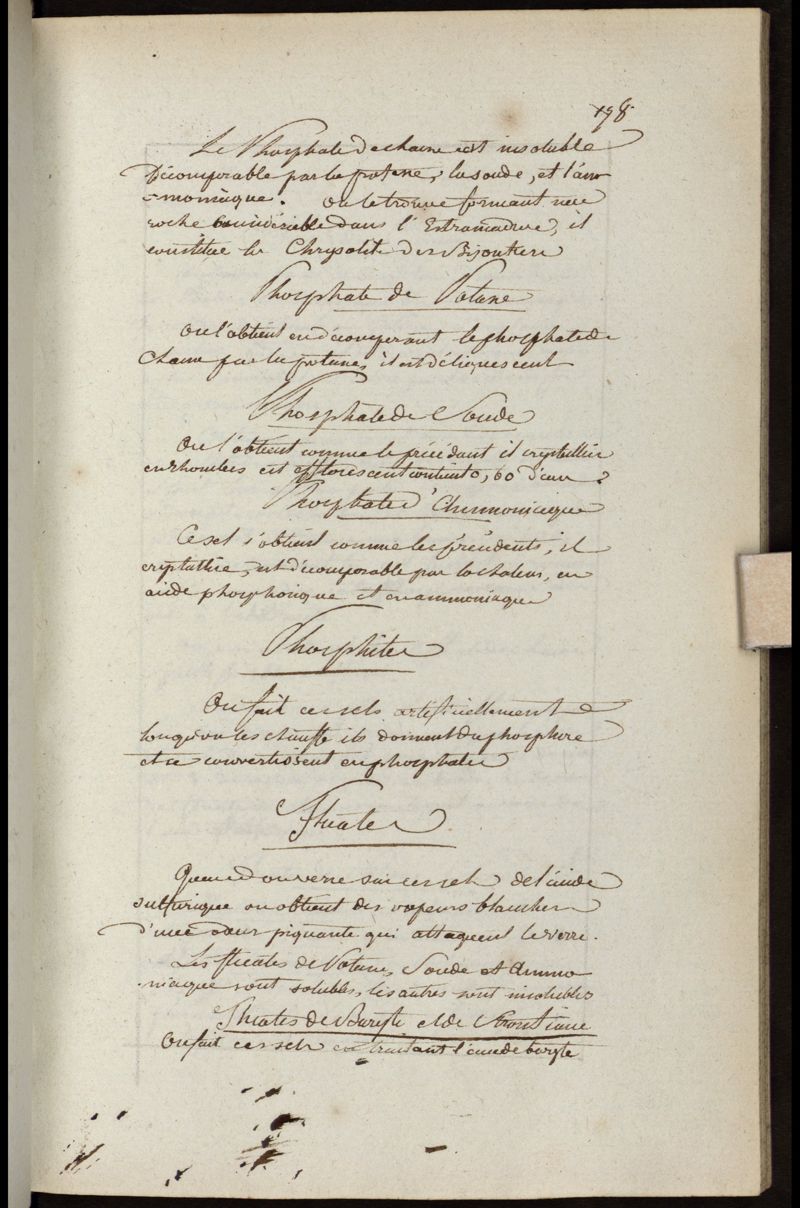 198
Le Phosphate de chaux est insoluble
Décomposable par la potasse, la soude, et l'am
-moniaque. On le trouve formant une
roche dans l'Estramadure, il
constitue la Chrysolite des Bijoutiers
Phosphate de Potasse
On l'obtient en décomposant le phosphate de
Chaux par la potasse, il est déliquescent
Phosphate de Soude
On l'obtient comme le précédant il crystallise
en rhombes est efflorescent contient 0,60 d'eau
Phosphate d'Ammoniaque
Ce sel s'obtient comme les précédents, il
crystallise, est décomposable par la chaleur, en
acide phosphorique et en ammoniaque
Phosphites
On fait ces sels artificiellement
lorsqu'on les chauffe ils donnent du phosphore
et se convertissent en phosphates
Fluates
Quand on verse sur ces sels de l'acide
sulfurique on obtient des vapeurs blanches
d'une odeur piquante qui attaquent le verre.
Les fluates de Potasse, Soude et Ammo
-niaque sont solubles, les autres sont insolubles
Fluates de Baryte et de Strontiane
On fait ces sels en traitant l'eau de baryte